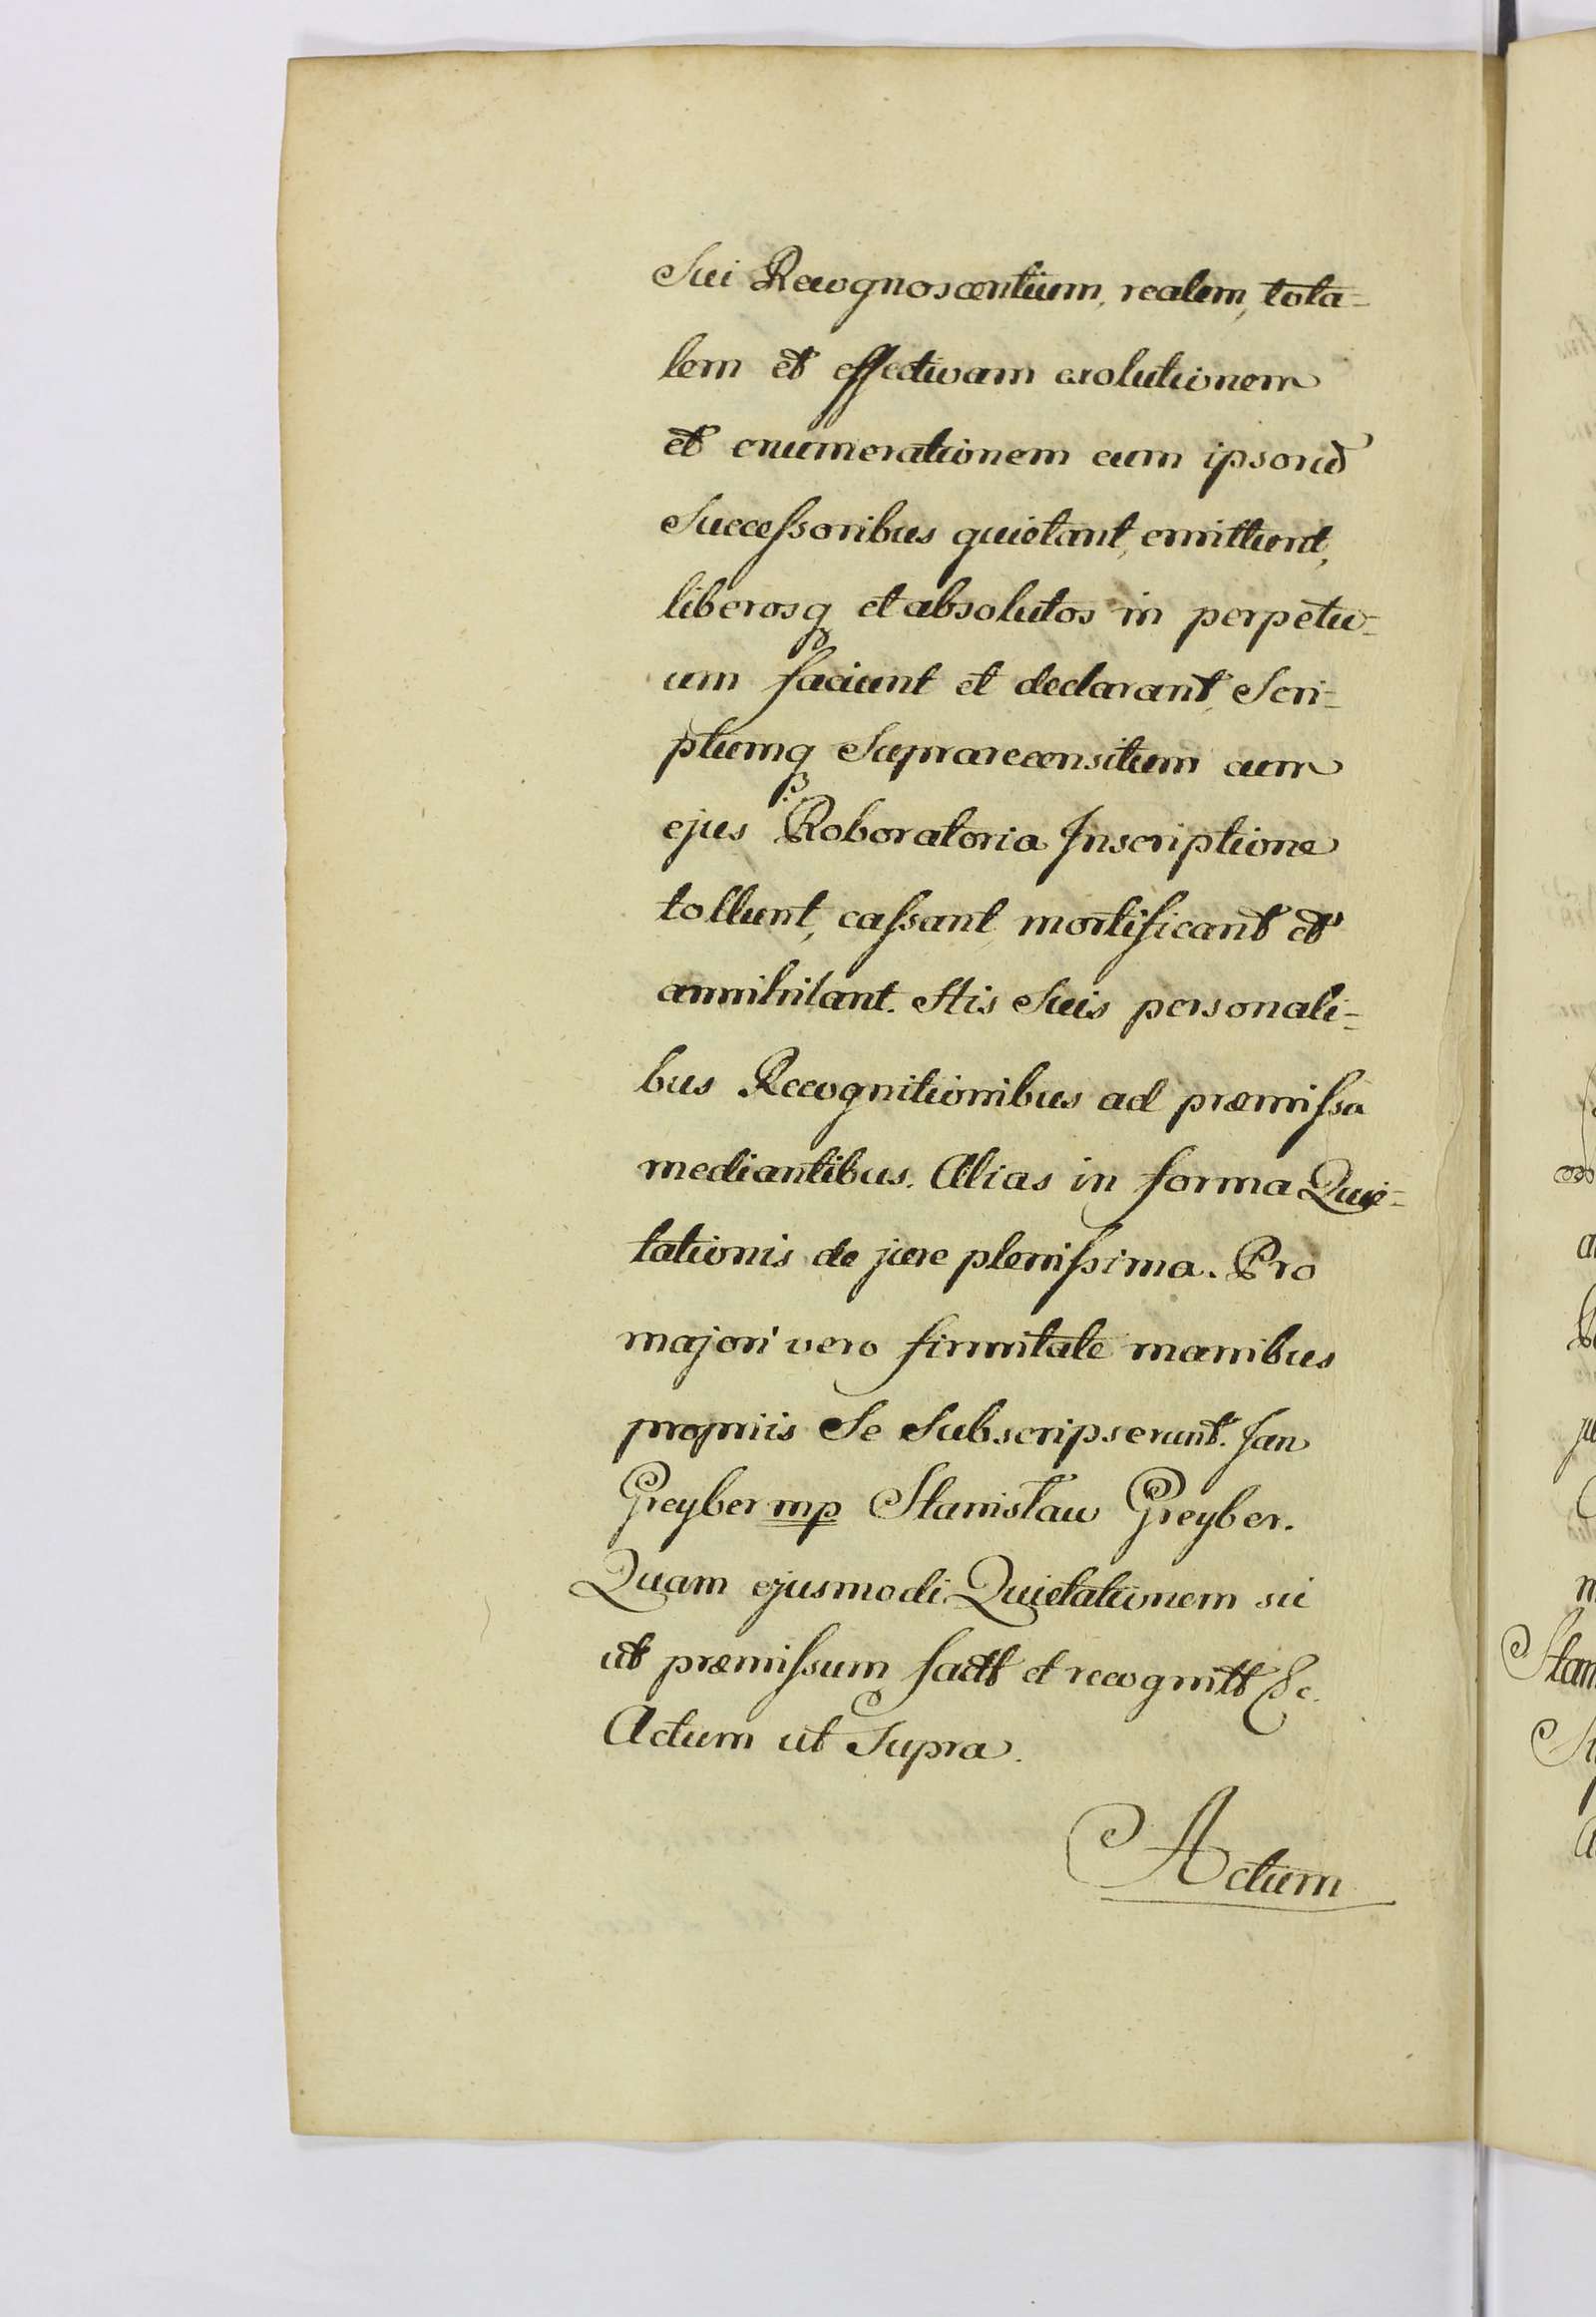 Sui Recognoscentium, realem, tota=
lem et effectivam exolutionem
et enumerationem cum ipsorũ
Succeſsoribus quietant, emittunt,
liberosq et absolutos in perpetu=
um faciunt et declarant, Scri=
ptumq Suprarecensitum cum
ejus Roboratoria Inscriptione
tollunt, caſsant, mortificant et
annihilant. His Suis personali=
bus Recognitionibus ad præmiſsa
mediantibus. Alias in forma Quie=
tationis de jure pleniſsima. Pro
majori vero firmitate manibus
propriis Se Subscripserunt. Jan
Greyber mp Stanisław Greyber.
Quam ejusmodi Quietationem sic
ut præmiſsum factt et recognitt &c.
Actum ut Supra.
Actum